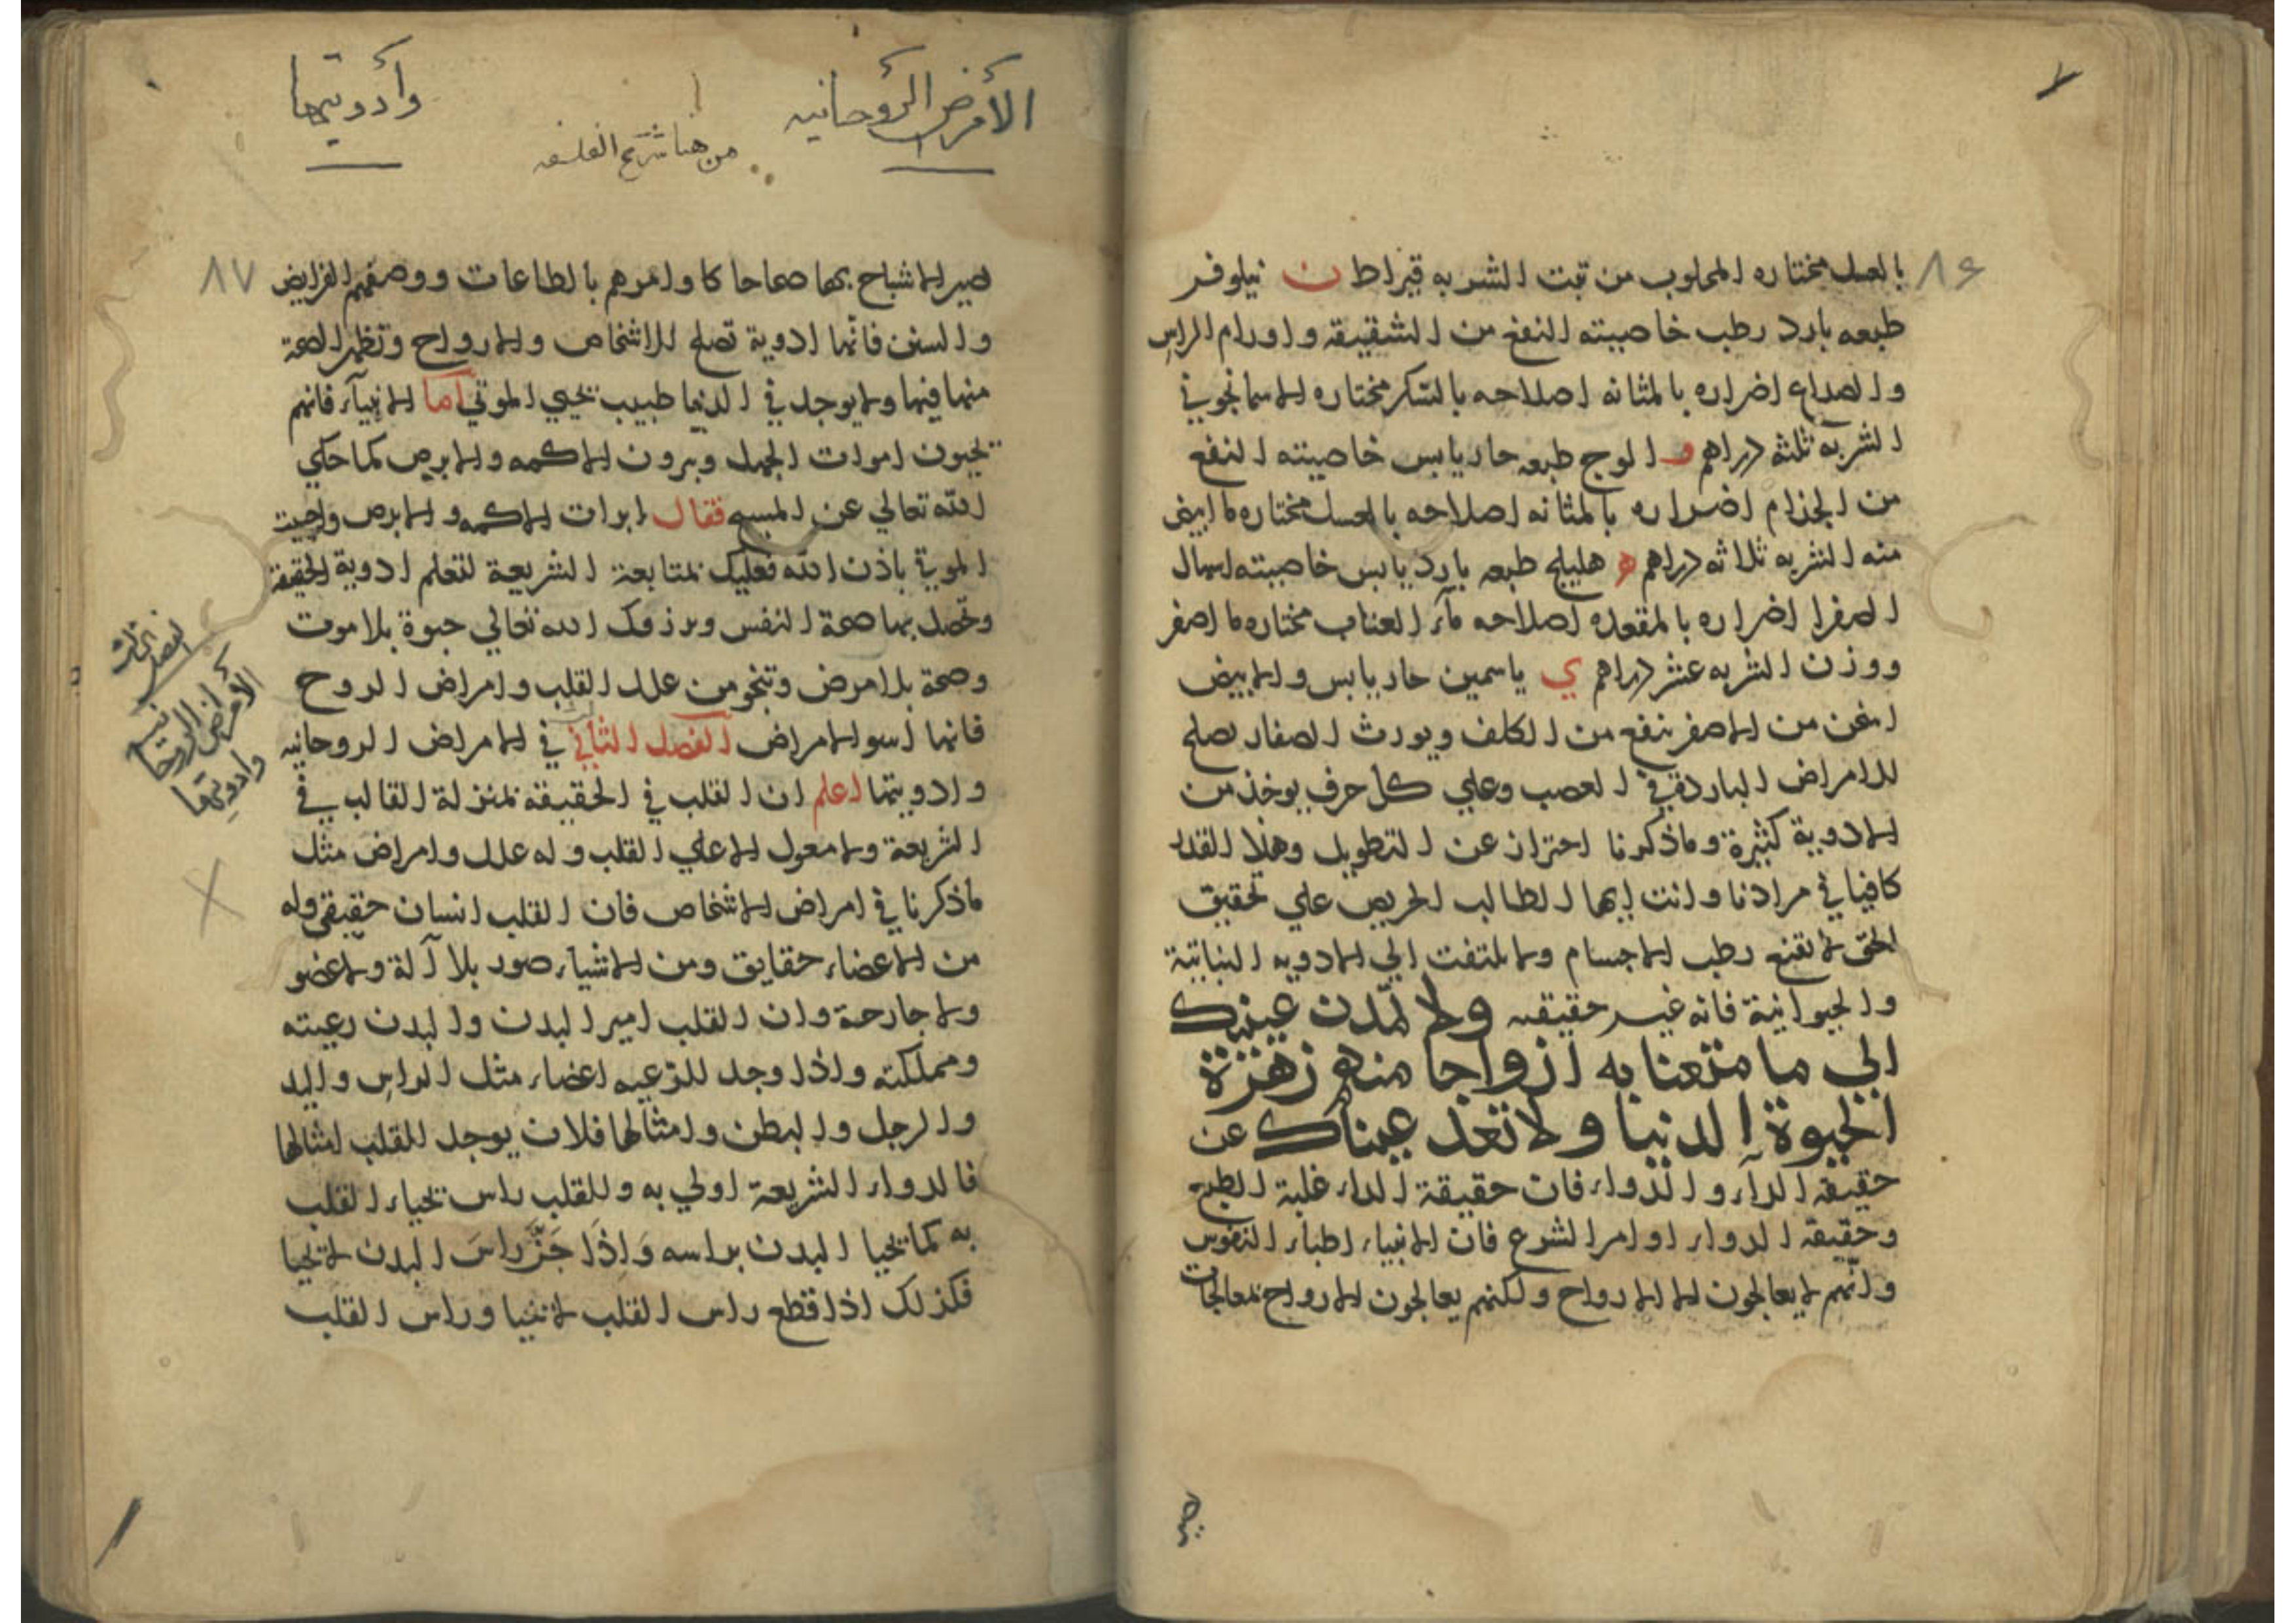 ٨٦
بالعسل مختاره المجلوب من تبت الشربه قيراط ن نيلوفر
طبعه بارد رطب خاصيته النفع من الشقيقه واورام الراس
والصداع اضراره بالمثانه اصلاحه بالسكر مختاره الاسمانجوني
الشربة ثلثه دراهم و الوج طبعه حار يابس خاصيته النفع
من الجذام اضراره بالمثانه اصلاحه بالعسل مختاره ما ابيض
منه الشربه ثلاثه دراهم ه هليلج طبعه بارد يابس خاصيته اسهال
الصفرا اضراره بالمقعده اصلاحه مآء العناب مختاره ما اصفر
ووزن الشربه عشر دراهم ي ياسمين حار يابس والابيض
اسخن من الاصفر ينفع من الكلف ويورث الصفار يصلح
للامراض الباردة في العصب وعلي كل حرف يوخذ من
الادوية كثيرة وماذكرنا احتراز عن التطويل وهذا القدر
كافيا في مرادنا وانت ايها الطالب الحريص علي تحقيق
الحق لا تقنع بطب الاجسام ولا تلتفت الي الادويه النباتية
والحيوانية فانه غير حقيقه ولا تمدن عينيك
الي ما متعنا به ازواجا منهم زهرة
الحيوة الدنيا ولا تعد عيناك عن
حقيقه الدآء والدواء فان حقيقة الداء غلبة الطبع
وحقيقه الدواء اوامر الشرع فان الانبياء اطباء النفوس
وانهم لا يعالجون الا الارواح ولكنهم يعالجون الارواح بمعالجات
الأمرض الرؤحانيه
وأدويتها
من هنا شرح الفلسفه
٨٧
تصير الاشباح بها صحاحا كاوامرهم بالطاعات ووصفهم الفرايض
والسنن فانها ادوية تصلح للاشخاص والارواح وتظهر الصحة
منها فيها ولا يوجد في الدنيا طبيب يحيي الموتي اما الانبيآء فانهم
يحيون اموات الجهل ويبرون الاكمه والابرص كما حكي
الله تعالي عن المسيح فقال ابرات الاكمه والابرص واحييت
الموتي باذن الله فعليك بمتابعة الشريعة لتعلم ادوية الحقيقة
وتحصل بها صحة النفس ويرزقك الله تعالي حيوة بلا موت
وصحة بلا مرض وتنجو من علل القلب وامراض الروح
فانها اسو الامراض الفصل الثاني في الامراض الروحانيه
وادويتها اعلم ان القلب في الحقيقه بمنزلة القالب في
الشريعة ولا معول الا علي القلب وله علل وامراض مثل
ماذكرنا في امراض الاشخاص فان القلب انسان حقيقي وله
من الاعضاء حقايق ومن الاشياء صور بلا آلة ولا عضو
ولا جارحة وان القلب امير البدن والبدن رعيته
ومملكته واذا وجد للرعيه اعضاء مثل الراس واليد
والرجل والبطن وامثالها فلان يوجد للقلب امثالها
فالدواء الشريعة اولي به وللقلب راس تحياء القلب
به كما يحيا البدن براسه وَاِذَا جَزّ راسَ البدن لا يحيا
فكذلك اذا قطع راس القلب لا يحيا وراس القلب
الأمرض الروحانيه
وادويتها